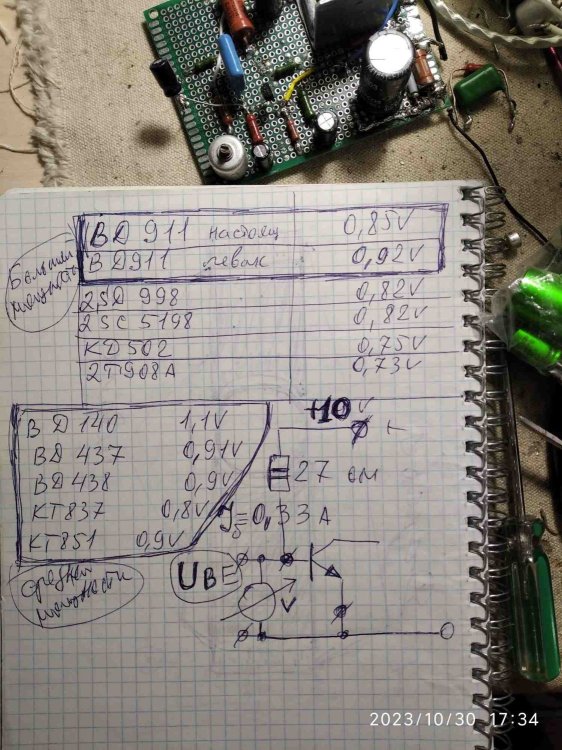 BD 911 настоящ 0,85V
BD911 левак 0,92V
Большой мощности
2SD 998 0,82V
2SC 5198 0,82V
KD502 0,75V
2T908A 0,73V
BD 140 1,1V
BD 437 0,91V
BD 438 0,9V
KT837 0,8V
KT851 0,9V
Средней мощности
+10V
+
27 ом
Jб=0,33A
UBE
V
2023/10/30 17:34